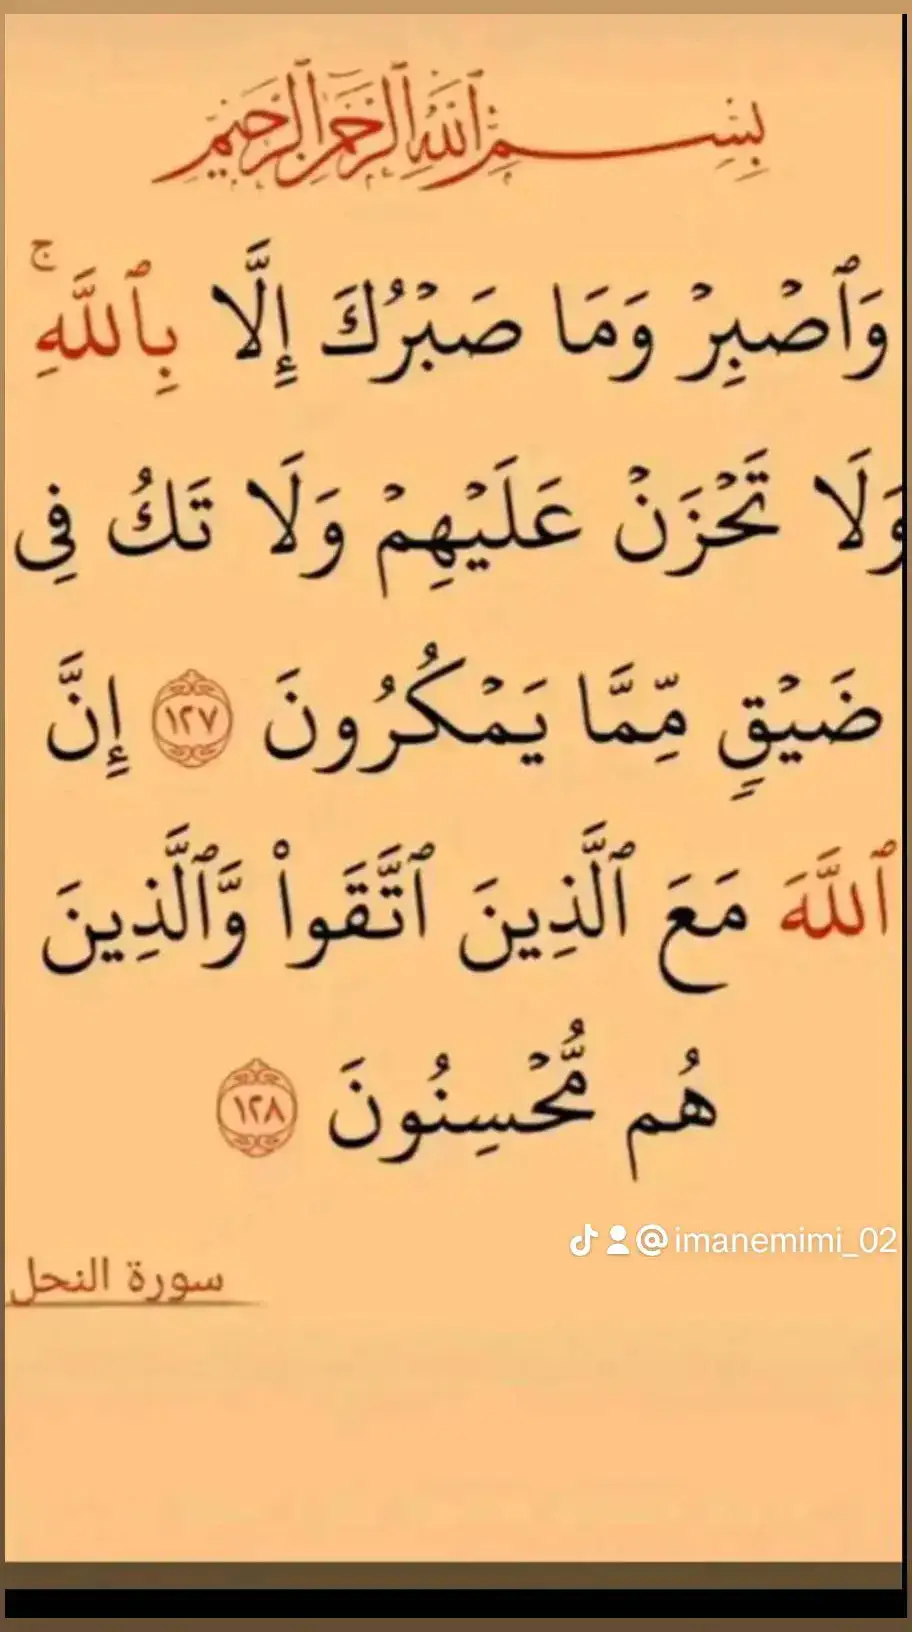 بِسْمِ ٱللَّهِ ٱلرَّحْمَٰنِ ٱلرَّحِيمِ
وَٱصۡبِرۡ وَمَا صَبۡرُكَ إِلَّا بِٱللَّهِۚ
وَلَا تَحۡزَنۡ عَلَيۡهِمۡ وَلَا تَكُ فِى
ضَيۡقٖ مِّمَّا يَمۡكُرُونَ ١٢٧ إِنَّ
ٱللَّهَ مَعَ ٱلَّذِينَ ٱتَّقَواْ وَّٱلَّذِينَ
هُم مُّحۡسِنُونَ ١٢٨
@imanemimi_02
سورة النحل